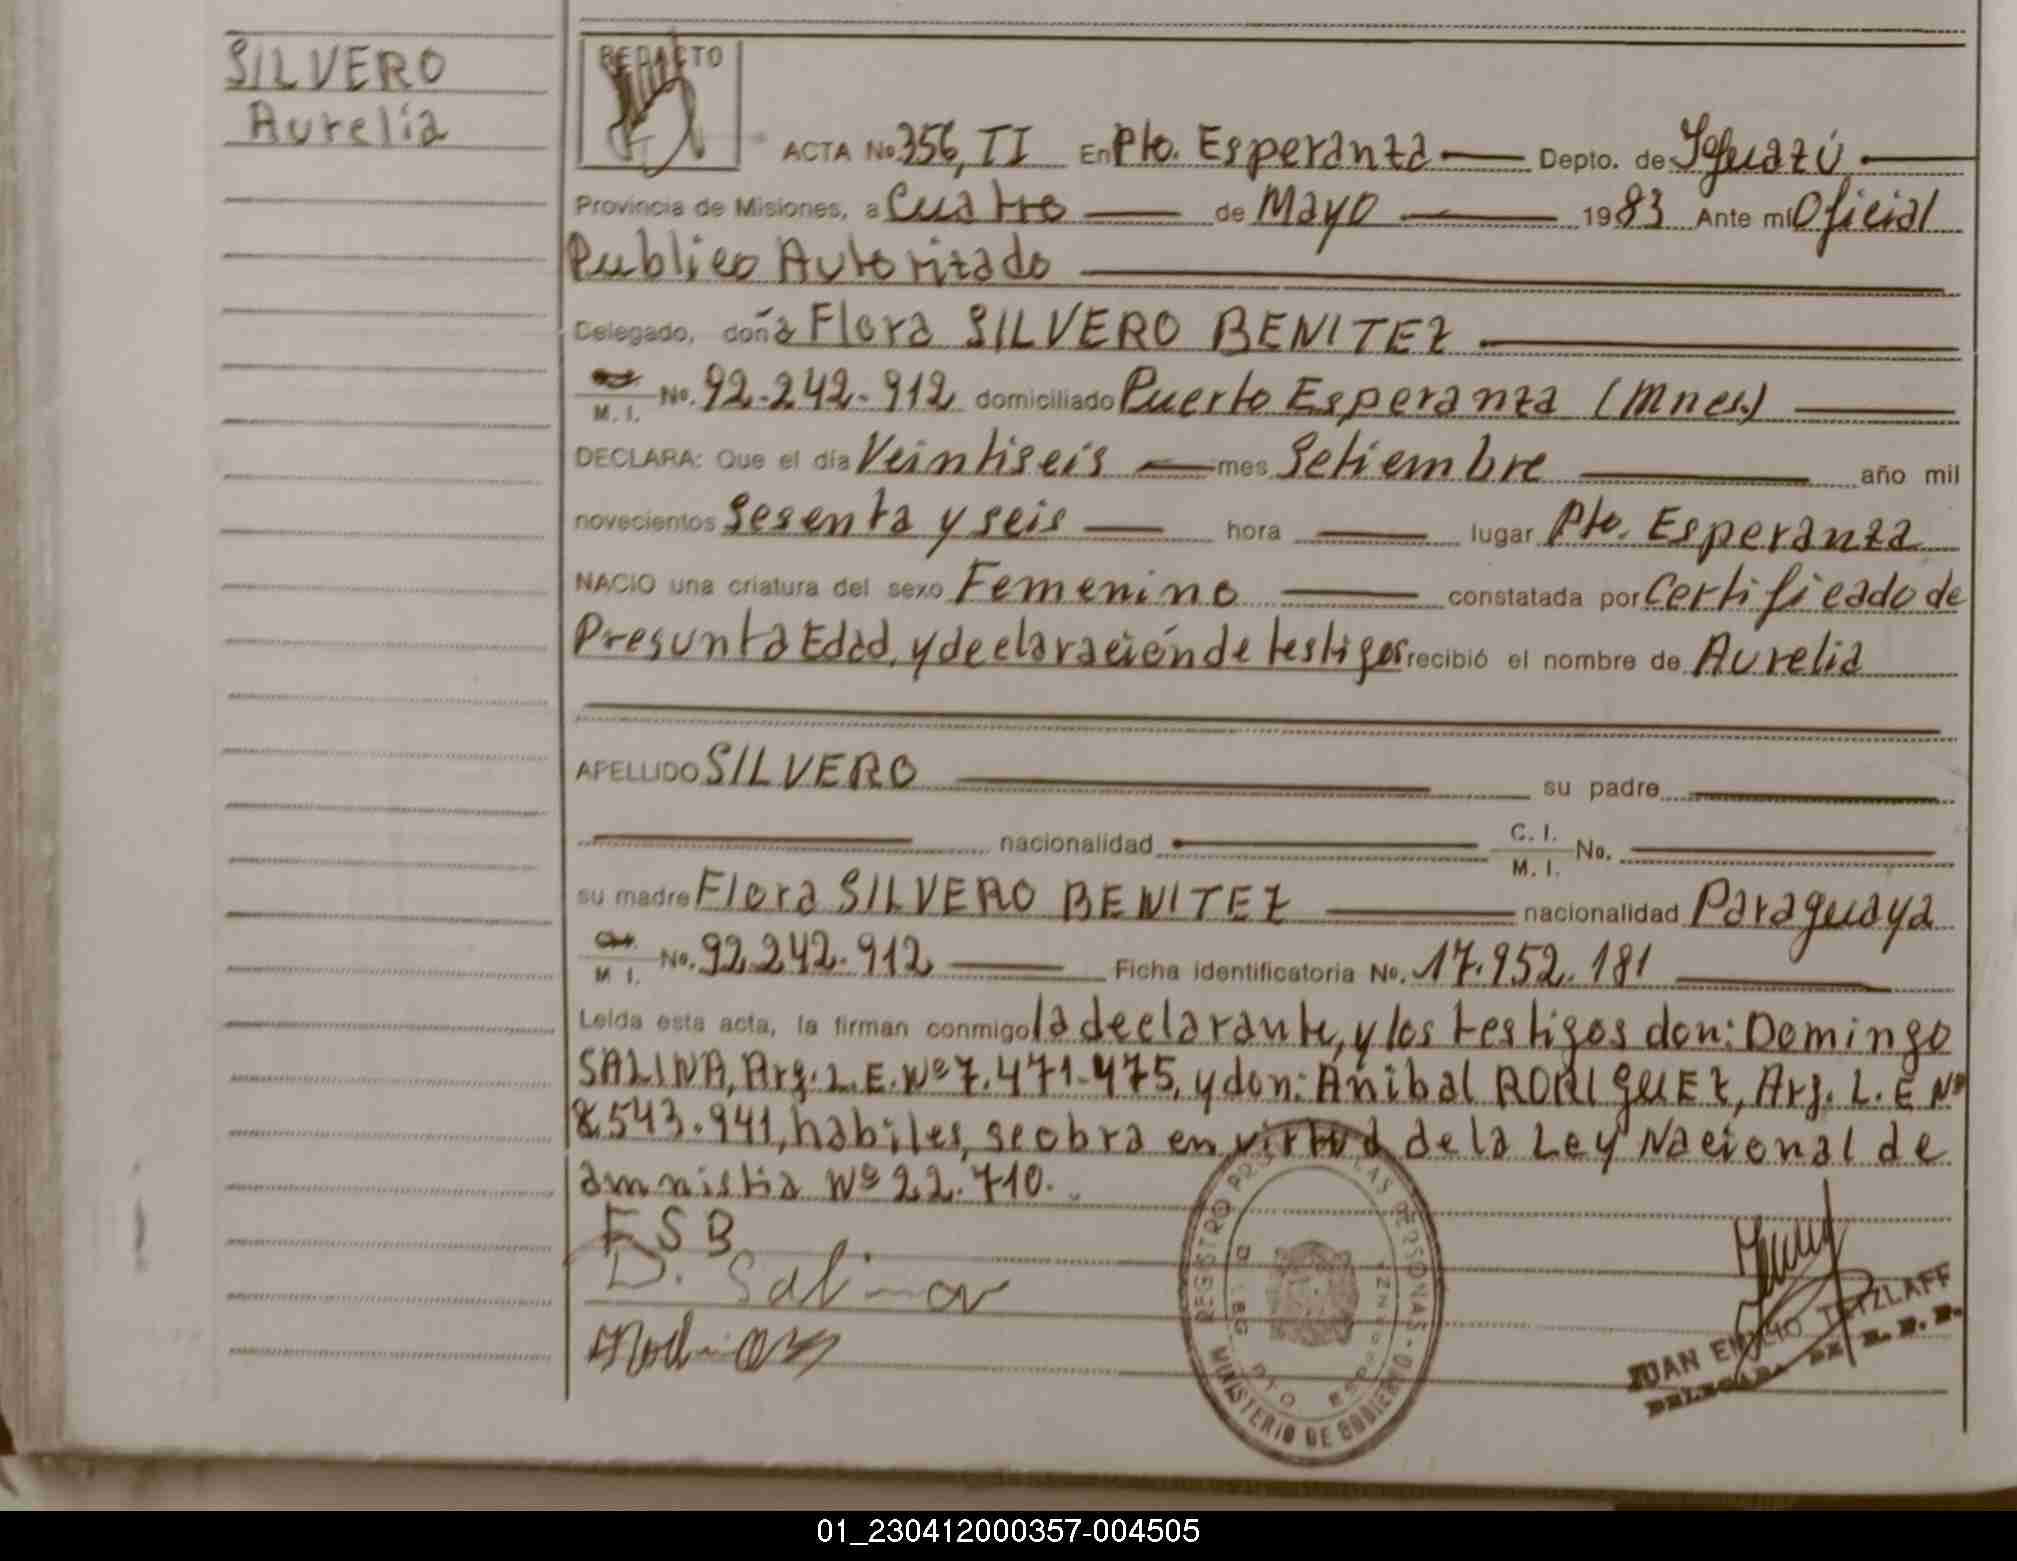 SILVERO
Aurelia
REDACTO
ACTA No. 356, II En Pto. Esperanza Depto. de Iguazú
Provincia de Misiones, a Cuatro de Mayo 1983 Ante mí Oficial
Publico Autorizado
Delegado, doña Flora SILVERO BENITEZ
M. I. No. 92.242.912 domiciliado Puerto Esperanza (Mnes.)
DECLARA: Que el día Veintiseis mes Setiembre año mil
novecientos Sesenta y seis hora lugar Pto. Esperanza
NACIO una criatura del sexo Femenino constatada por Certificado de
Presunta Edad, y declaración de testigos recibió el nombre de Aurelia
APELLIDO SILVERO su padre
nacionalidad C. I. M. I. No.
su madre Flora SILVERO BENITEZ nacionalidad Paraguaya
M. I. No. 92.242.912 Ficha identificatoria No. 17.952.181
Leída esta acta, la firman conmigo la declarante, y los testigos don: Domingo
SALINA, Arg. L.E. Nº 7.471.475, y don: Anibal RODRIGUEZ, Arg. L.E Nº
8.543.941, habiles, se obra en virtud de la Ley Nacional de
amnistia Nº 22.710.
F S B
D. Salina
REGISTRO PROV. DE LAS PERSONAS
MINISTERIO DE GOBIERNO
DELEG. PTO ESPERANZA
JUAN EMILIO TETZLAFF
DELEGAD. DE R. P. P.
01_230412000357-004505